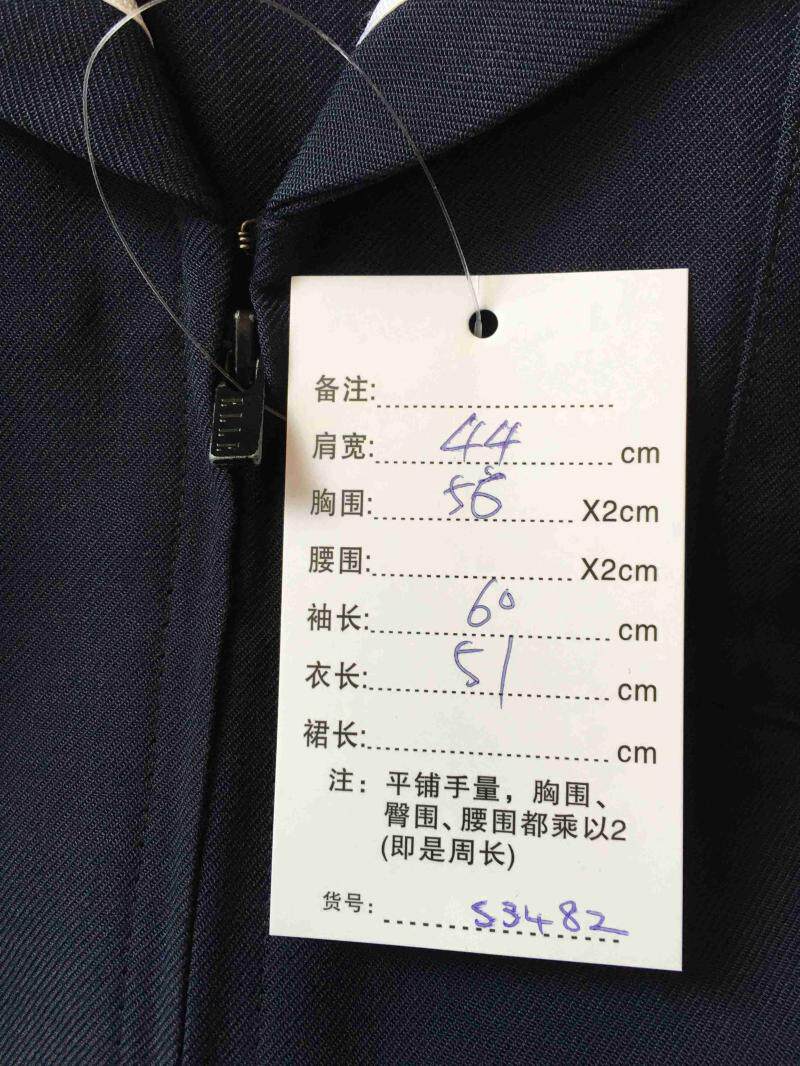 备注:
肩宽: 44 cm
胸围: 56 X2cm
腰围: X2cm
袖长: 60 cm
衣长: 51 cm
裙长: cm
注: 平铺手量，胸围、
臀围、腰围都乘以2
(即是周长)
货号: S3482